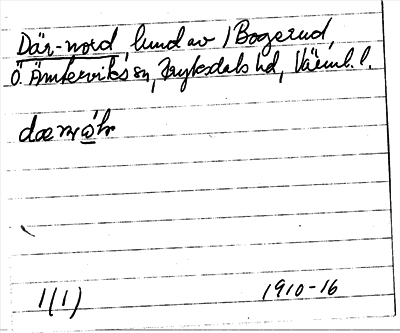 Där-nord, lund av / Bogerud,
Ö. Ämterviks sn, Fryksdals hd, Värml. l.
1(1) 1910-16